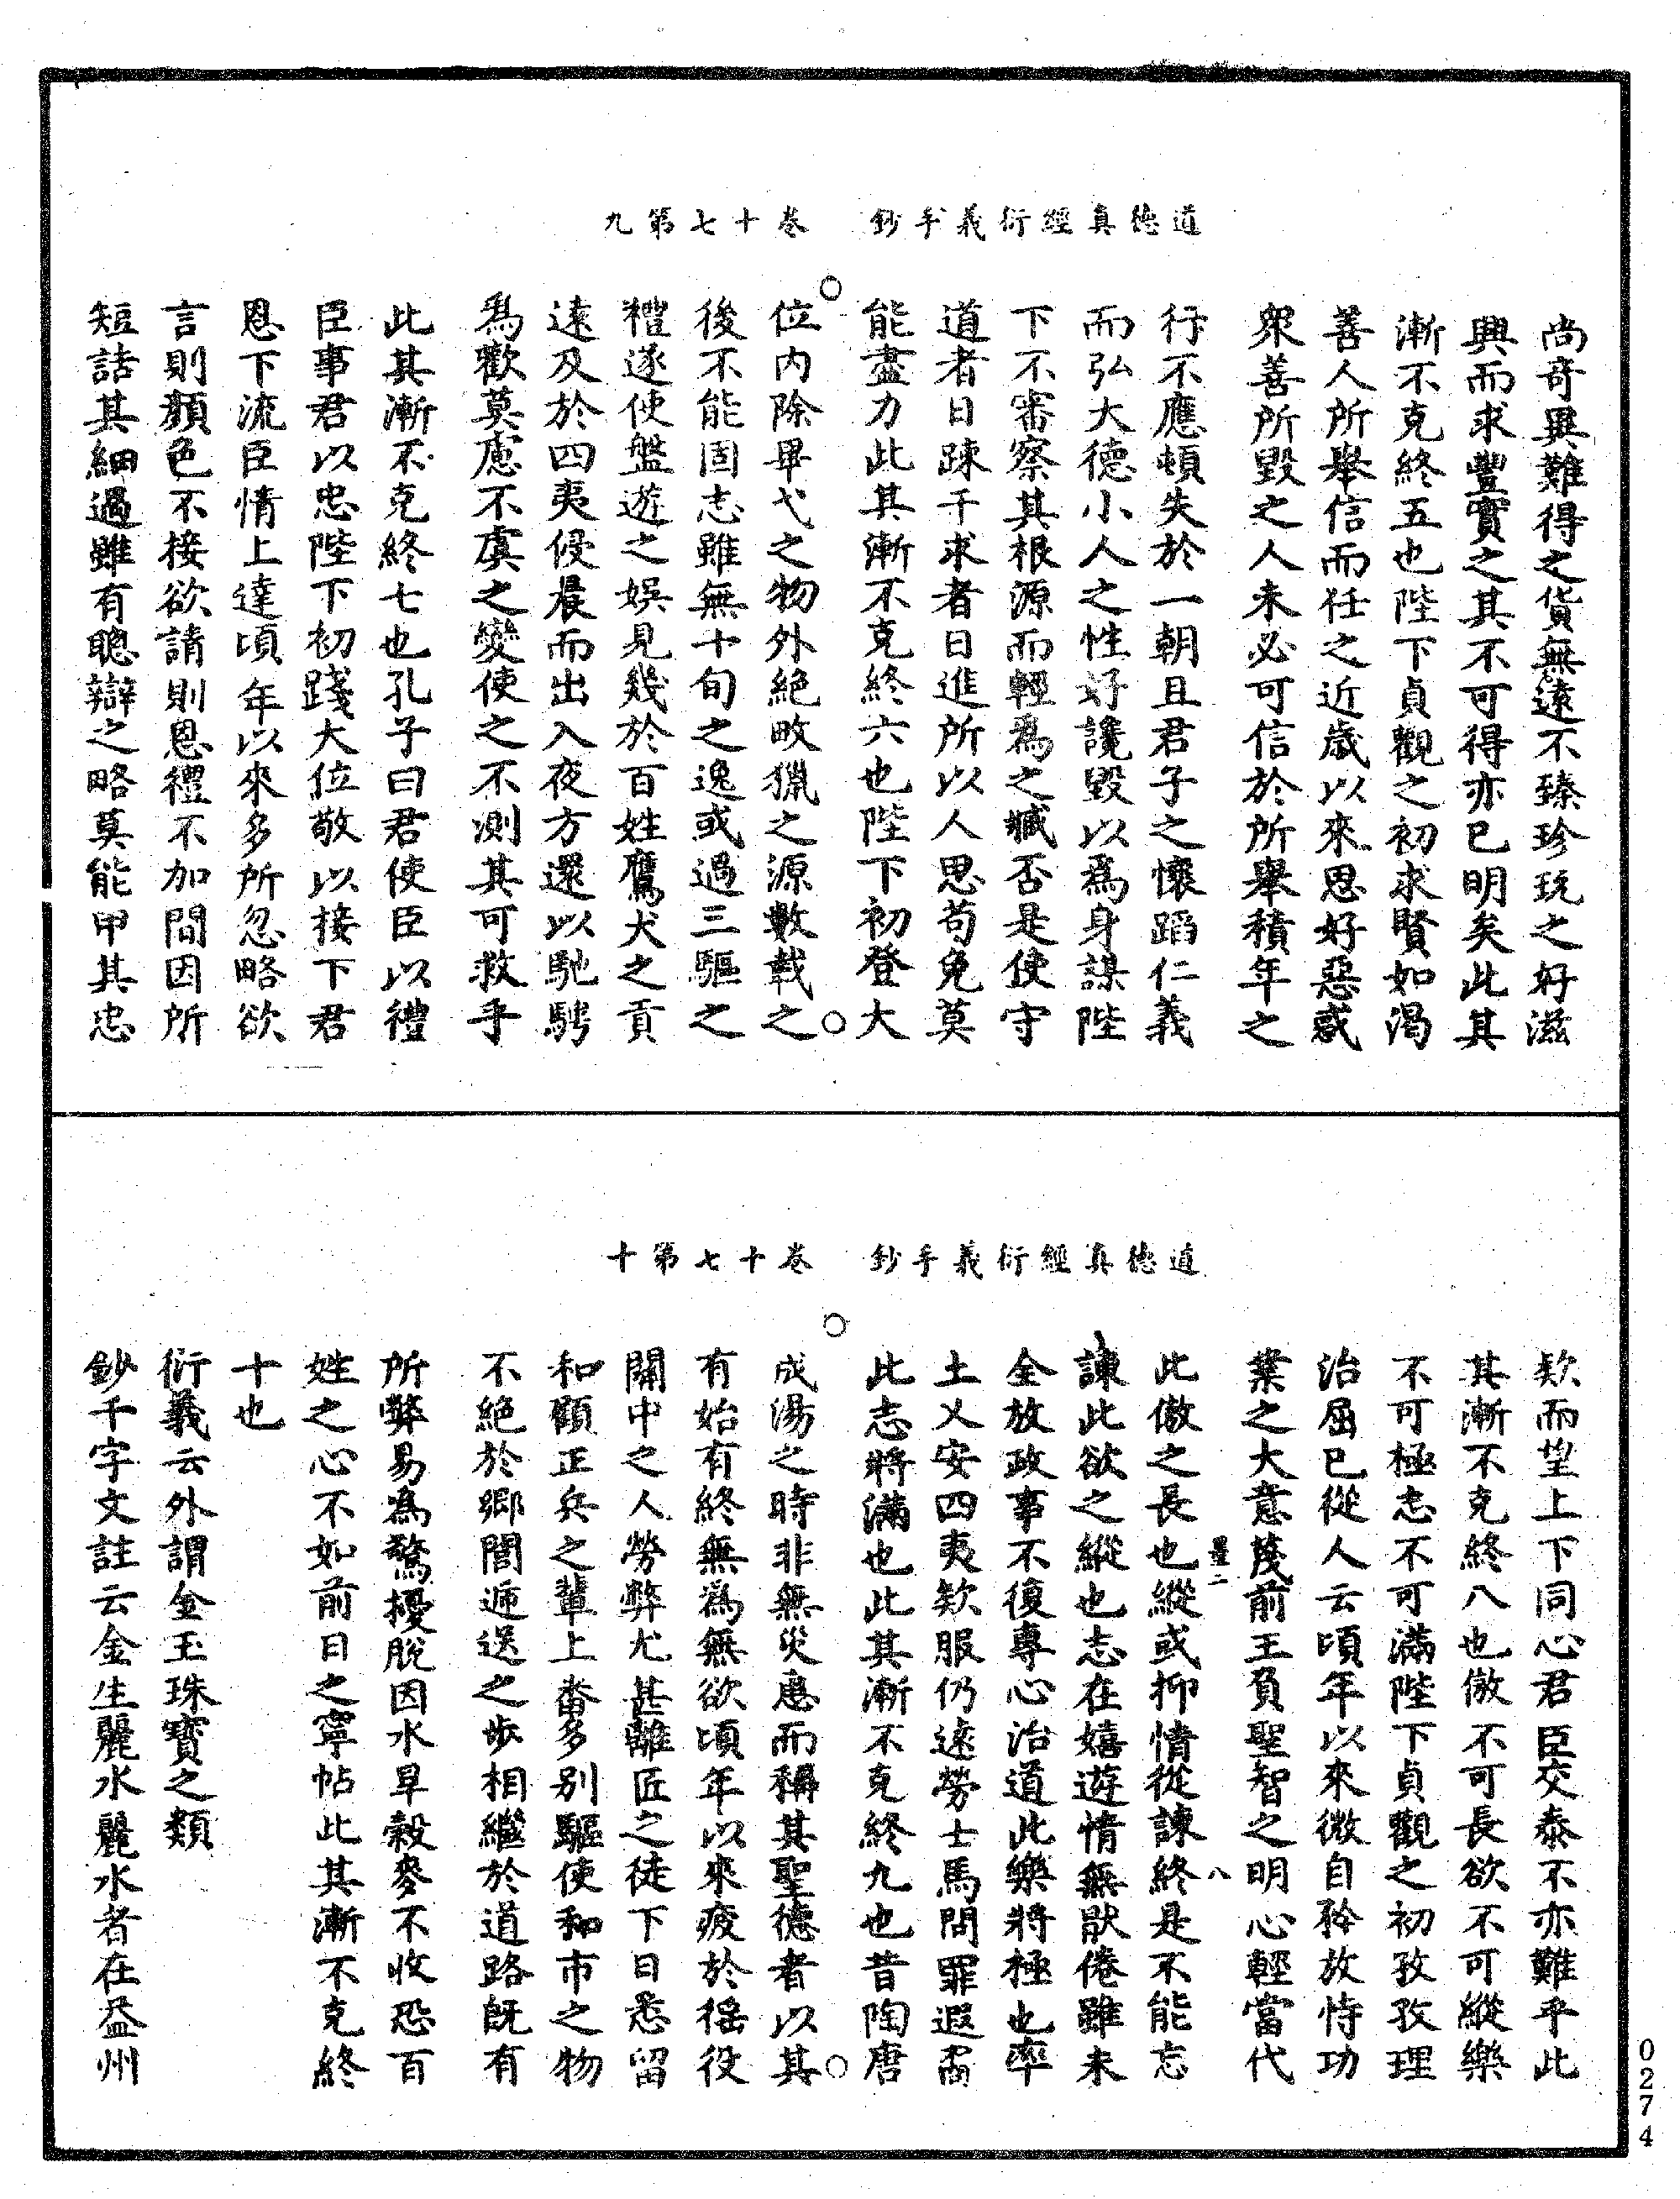 道德真經衍義手鈔　卷十七第九
尚奇異難得之貨無遠不臻珍玩之好滋
興而求豐實之其不可得亦已明矣此其
漸不克終五也陛下貞觀之初求賢如渴
善人所舉信而任之近歲以來思好惡惑
衆善所毀之人未必可信於所舉積年之
行不應頓失於一朝且君子之懷蹈仁義
而弘大德小人之性好讒毀以為身謀陛
下不審察其根源而輕為之臧否是使守
道者日踈干求者日進所以人思苟免莫
能盡力此其漸不克終六也陛下初登大
位內除畢弋之物外絕畋獵之源數載之
後不能固志雖無十旬之逸或過三驅之
禮遂使盤遊之娛見幾於百姓鷹犬之貢
遠及於四夷侵晨而出入夜方還以馳騁
為歡莫慮不虞之變使之不測其可救乎
此其漸不克終七也孔子曰君使臣以禮
臣事君以忠陛下初踐大位敬以接下君
恩下流臣情上達頃年以來多所忽略欲
言則顏色不接欲請則恩禮不加間因所
短詰其細過雖有聰辯之略莫能申其忠
道德真經衍義手鈔　卷十七第十
欵而望上下同心君臣交泰不亦難乎此
其漸不克終八也傲不可長欲不可縱樂
不可極志不可滿陛下貞觀之初孜孜理
治屈已從人云頃年以來微自矜放恃功
業之大意蔑前王負聖智之明心輕當代
此傲之長也縱或抑情從諫終是不能忘
諫此欲之縱也志在嬉遊情無猒倦雖未
全放政事不復專心治道此樂將極也率
土乂安四夷欵服仍遠勞士馬問罪遐裔
此志將滿也此其漸不克終九也昔陶唐
成湯之時非無災患而稱其聖德者以其
有始有終無為無欲頃年以來疲於徭役
關中之人勞弊尤甚離匠之徒下日悉留
和顧正兵之輩上畨多別驅使和市之物
不絕於鄉閭遞送之步相繼於道路既有
所弊易為驚擾脫因水旱穀麥不收恐百
姓之心不如前日之寧帖此其漸不克終
十也
衍義云外謂金玉珠寶之類
鈔千字文註云金生麗水麗水者在益州
二　八
0274